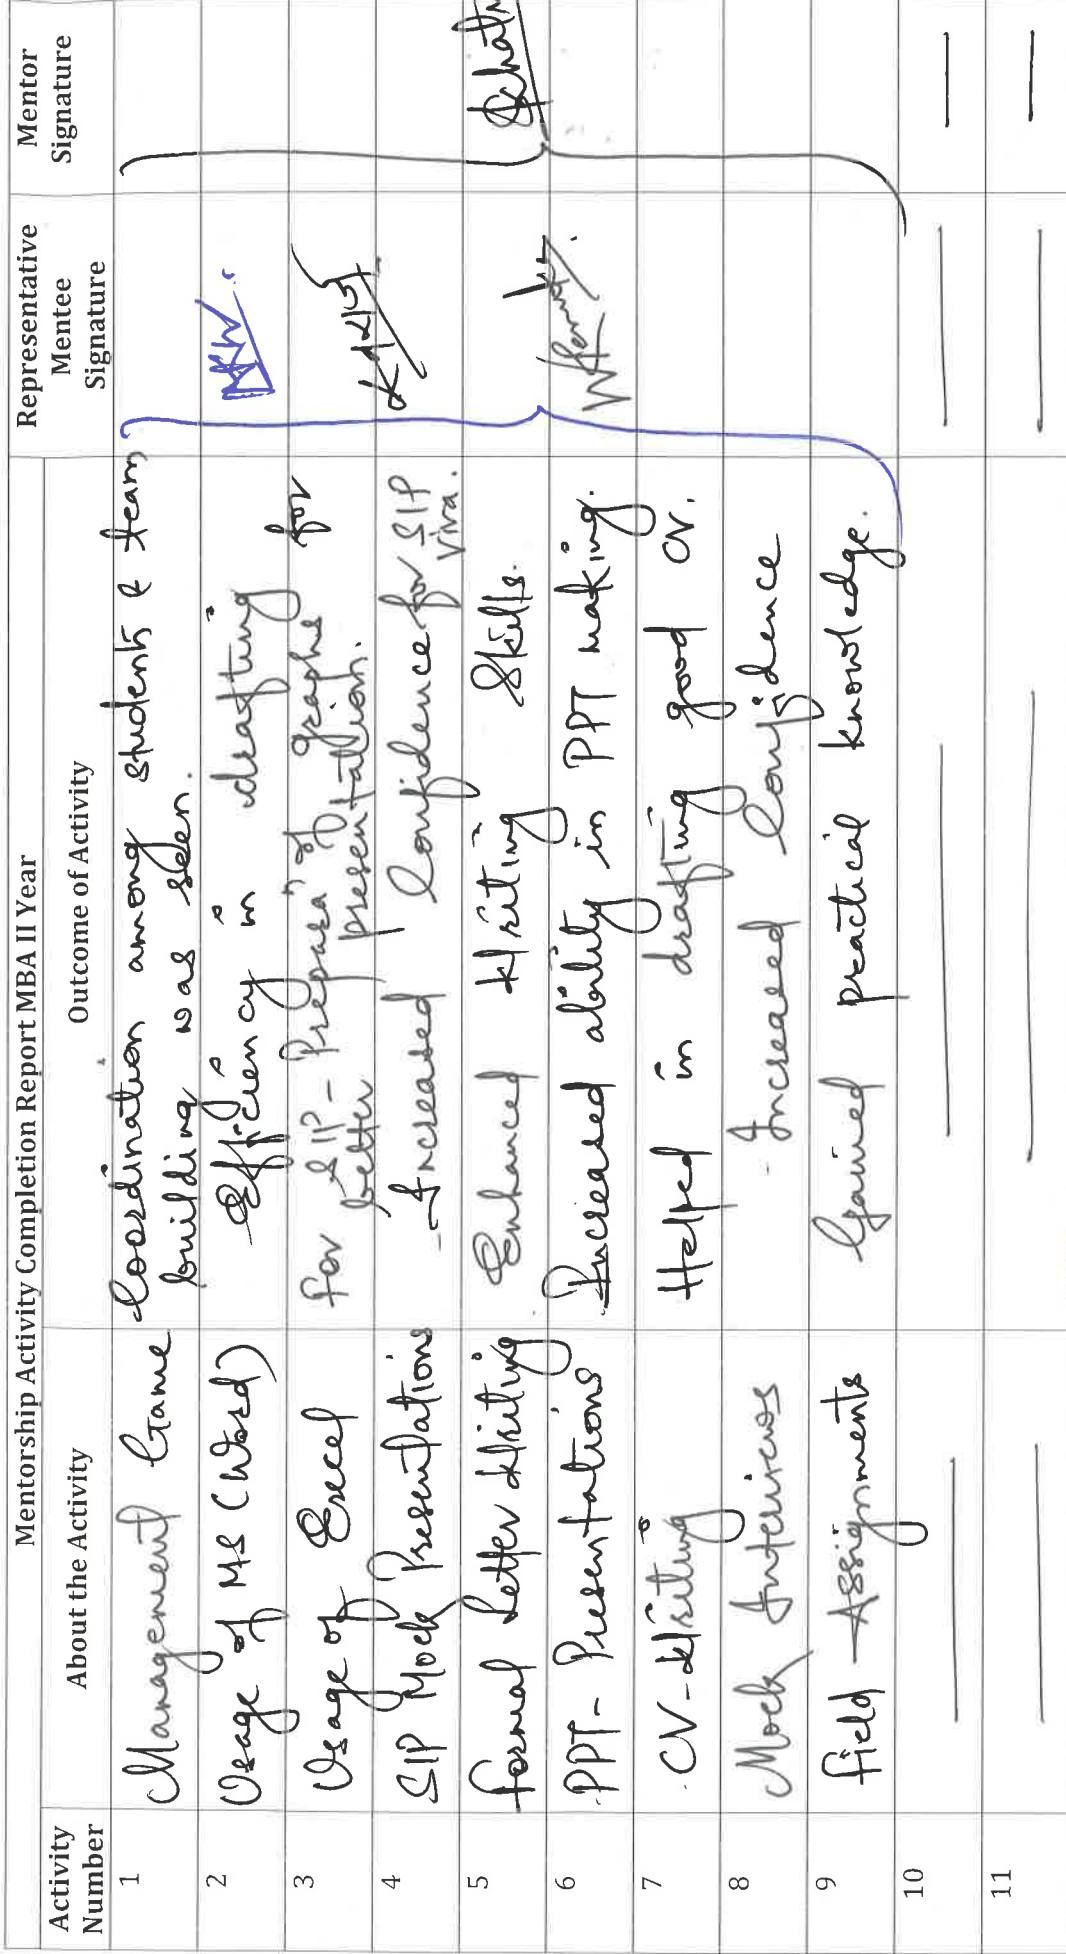 Mentorship Activity Completion Report MBA II Year
Activity Number
About the Activity
Outcome of Activity
Representative Mentee Signature
Mentor Signature
1
Management Game
Coordination among students & team
building was seen.
2
Usage of MS (Word)
Efficiency in drafting
3
Usage of Excel
For SIP - Preparaⁿ of graphs for
better presentation.
4
SIP Mock Presentations
- Increased Confidence for SIP
Viva.
5
Formal Letter Writing
Enhanced Writing Skills.
6
PPT- Presentations
Increased ability in PPT making.
7
CV-Writing
Helped in drafting good CV.
8
Mock Interviews
- Increased Confidence
9
Field Assignments
Gained practical knowledge.
10
11